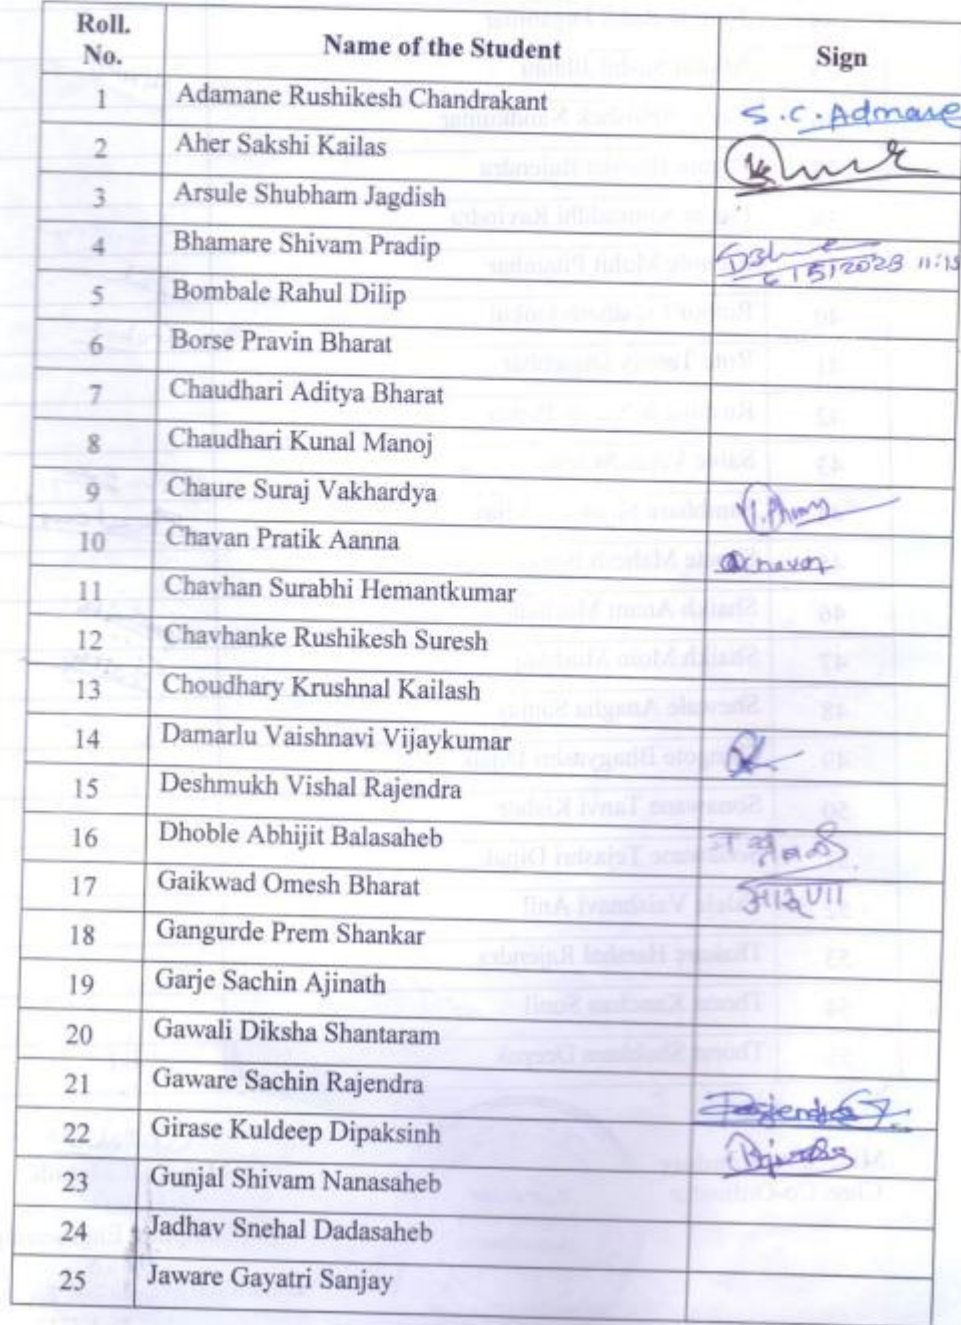 Roll. No. Name of the Student Sign
1 Adamane Rushikesh Chandrakant S.C. Admane
2 Aher Sakshi Kailas
3 Arsule Shubham Jagdish
4 Bhamare Shivam Pradip
5 Bombale Rahul Dilip
6 Borse Pravin Bharat
7 Chaudhari Aditya Bharat
8 Chaudhari Kunal Manoj
9 Chaure Suraj Vakhardya
10 Chavan Pratik Aanna
11 Chavhan Surabhi Hemantkumar
12 Chavhanke Rushikesh Suresh
13 Choudhary Krushnal Kailash
14 Damarlu Vaishnavi Vijaykumar
15 Deshmukh Vishal Rajendra
16 Dhoble Abhijit Balasaheb
17 Gaikwad Omesh Bharat
18 Gangurde Prem Shankar
19 Garje Sachin Ajinath
20 Gawali Diksha Shantaram
21 Gaware Sachin Rajendra
22 Girase Kuldeep Dipaksinh
23 Gunjal Shivam Nanasaheb
24 Jadhav Snehal Dadasaheb
25 Jaware Gayatri Sanjay